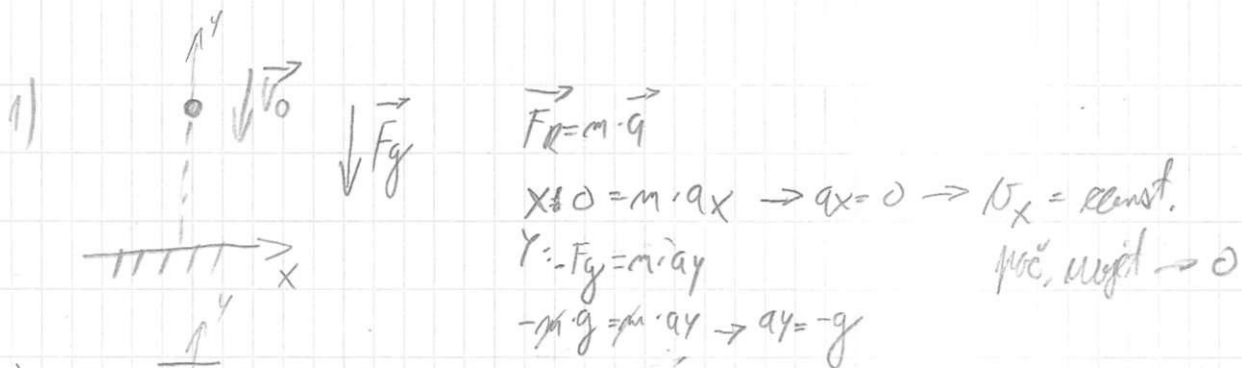 y
1)
v⃗₀
F⃗g
x
y
F⃗R=m·a⃗
x: 0=m·ax → ax=0 → vx = konst.
Y: -Fg=m·ay
poč. →0
-m·g=m·ay → ay=-g